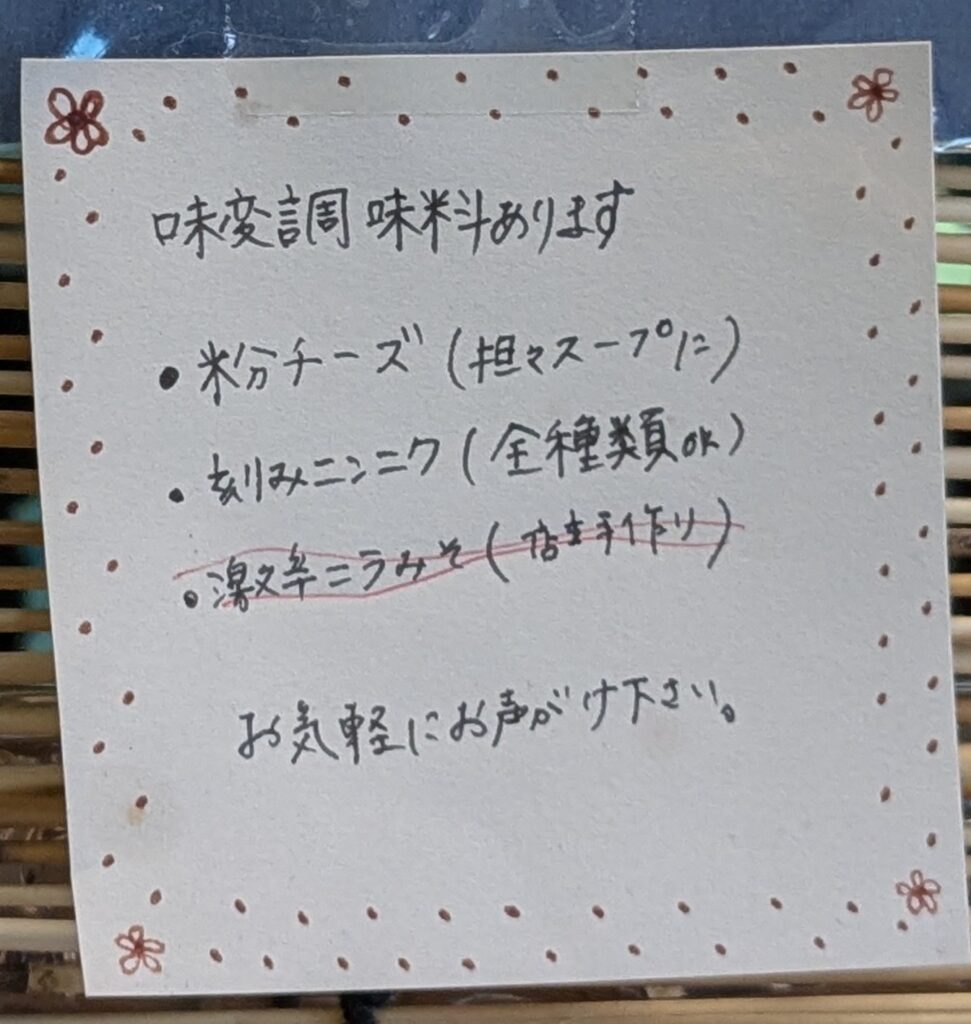 味変調味料あります
• 粉分チーズ (担々スープに)
• 刻みニンニク (全種類OK)
• 激辛ニラみそ (店主手作り)
お気軽にお声がけ下さい。